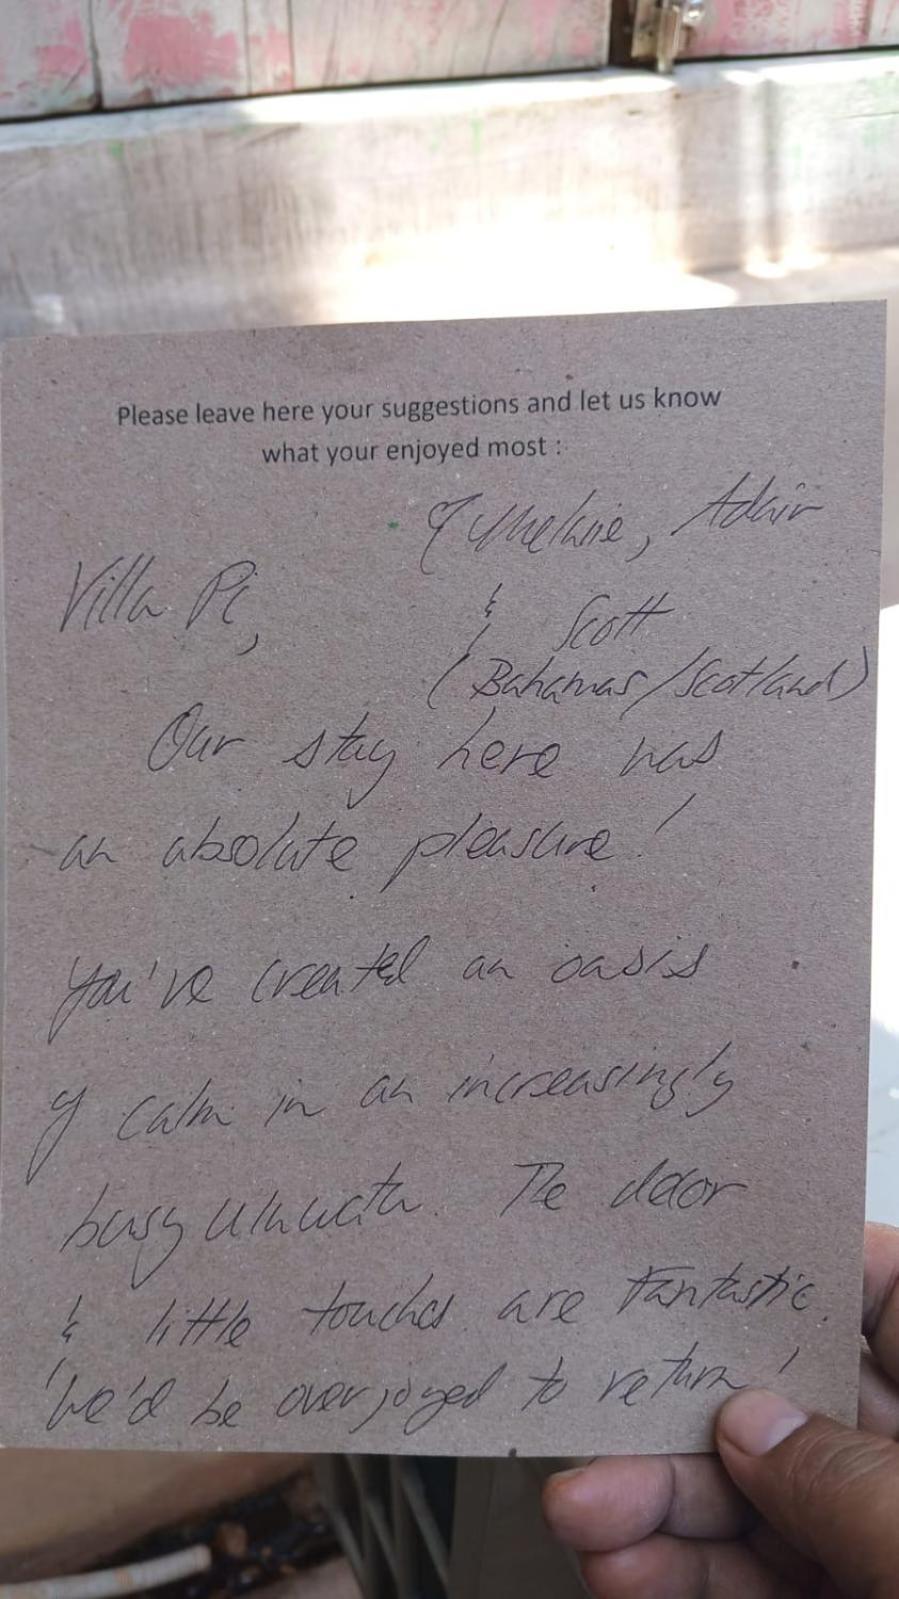 Please leave here your suggestions and let us know
what your enjoyed most :
Melanie, Adair
& Scott
(Bahamas/Scotland)
Villa Pi,
Our stay here was
an absolute pleasure!
You've created an oasis
of calm in an increasingly
busy Uluwatu. The decor
& little touches are fantastic.
We'd be overjoyed to return!